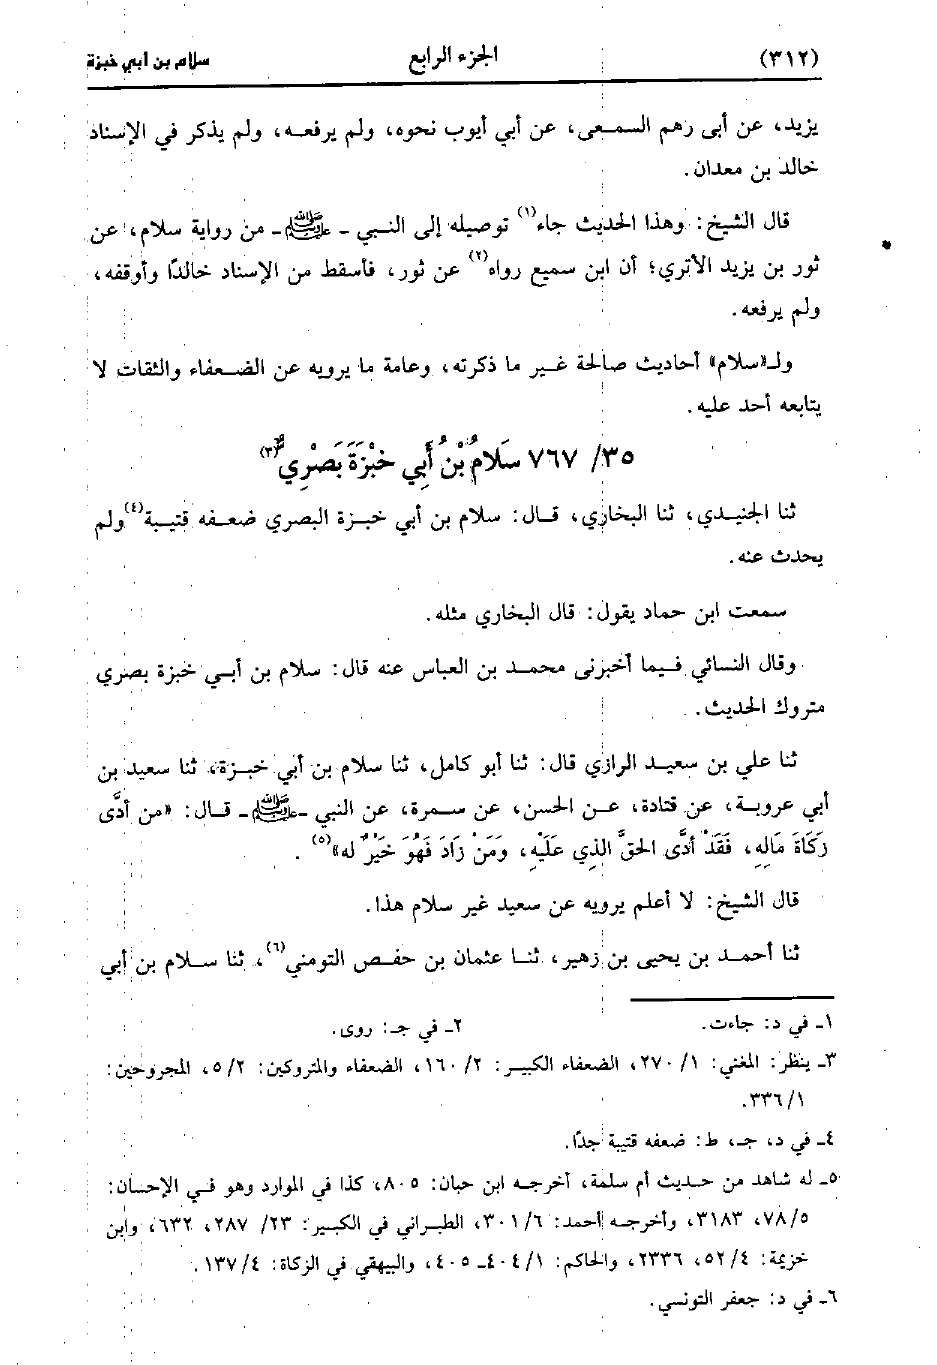 (٣١٢) الجزء الرابع سلام بن أبي خبزة
يزيد، عن أبى رهم السمعى، عن أبي أيوب نحوه، ولم يرفعه، ولم يذكر في الإسناد
خالد بن معدان.
قال الشيخ: وهذا الحديث جاء(١) توصيله إلى النبي ـ ﷺ ـ من رواية سلام، عن
ثور بن يزيد الأتري؛ أن ابن سميع رواه(٢) عن ثور، فأسقط من الإسناد خالدًا وأوقفه،
ولم يرفعه.
ولـ«سلام» أحاديث صالحة غير ما ذكرته، وعامة ما يرويه عن الضعفاء والثقات لا
يتابعه أحد عليه.
٣٥/ ٧٦٧ سَلامُ بْنُ أَبِي خَبْزَةَ بَصْرِيٌّ(٣)
ثنا الجنيدي، ثنا البخاري، قال: سلام بن أبي خبزة البصري ضعفه قتيبة(٤) ولم
يحدث عنه.
سمعت ابن حماد يقول: قال البخاري مثله.
وقال النسائي فيما أخبرنى محمد بن العباس عنه قال: سلام بن أبي خبزة بصري
متروك الحديث.
ثنا علي بن سعيد الرازي قال: ثنا أبو كامل، ثنا سلام بن أبي خبزة، ثنا سعيد بن
أبي عروبة، عن قتادة، عن الحسن، عن سمرة، عن النبي ـ ﷺ ـ قال: «من أدَّى
زَكَاةَ مَالِهِ، فَقَدْ أدَّى الحقَّ الذِي عَلَيْهِ، وَمَنْ زَادَ فَهُوَ خَيْرٌ له»(٥) .
قال الشيخ: لا أعلم يرويه عن سعيد غير سلام هذا.
ثنا أحمد بن يحيى بن زهير، ثنا عثمان بن حفص التومني(٦)، ثنا سلام بن أبي
١ـ في د: جاءت. ٢ـ في جـ: روى.
٣ـ ينظر: المغني: ١/ ٢٧٠، الضعفاء الكبير: ٢/ ١٦٠، الضعفاء والمتروكين: ٢/ ٥، المجروحين:
١/ ٣٣٦.
٤ـ في د، جـ، ط: ضعفه قتيبة جدًا.
٥ـ له شاهد من حديث أم سلمة، أخرجه ابن حبان: ٨٠٥، كذا في الموارد وهو في الإحسان:
٥/ ٧٨، ٣١٨٣، وأخرجه أحمد: ٦/ ٣٠١، الطبراني في الكبير: ٢٣/ ٢٨٧، ٦٣٢، وابن
خزيمة: ٤/ ٥٢، ٢٣٣٦، والحاكم: ١/ ٤٠٤ـ ٤٠٥، والبيهقي في الزكاة: ٤/ ١٣٧.
٦ـ في د: جعفر التونسي.